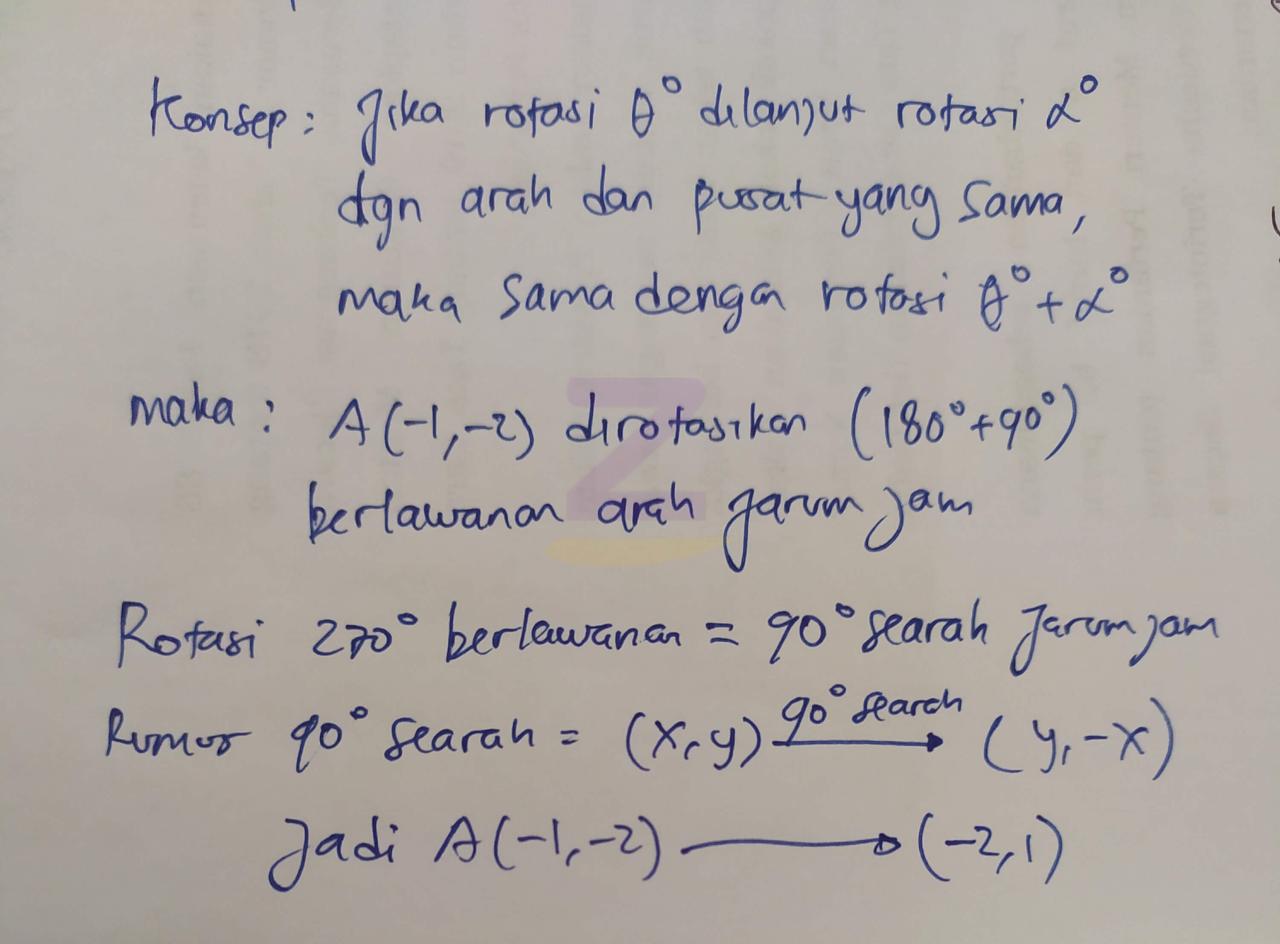 Konsep : Jika rotasi θ° dilanjut rotasi α°
dgn arah dan pusat yang sama,
maka sama dengan rotasi θ° + α°
maka : A(-1,-2) dirotasikan (180°+90°)
berlawanan arah jarum jam
Rotasi 270° berlawanan = 90° searah jarum jam
Rumus 90° searah = (x,y) 90° searah → (y,-x)
Jadi A(-1,-2) → (-2,1)